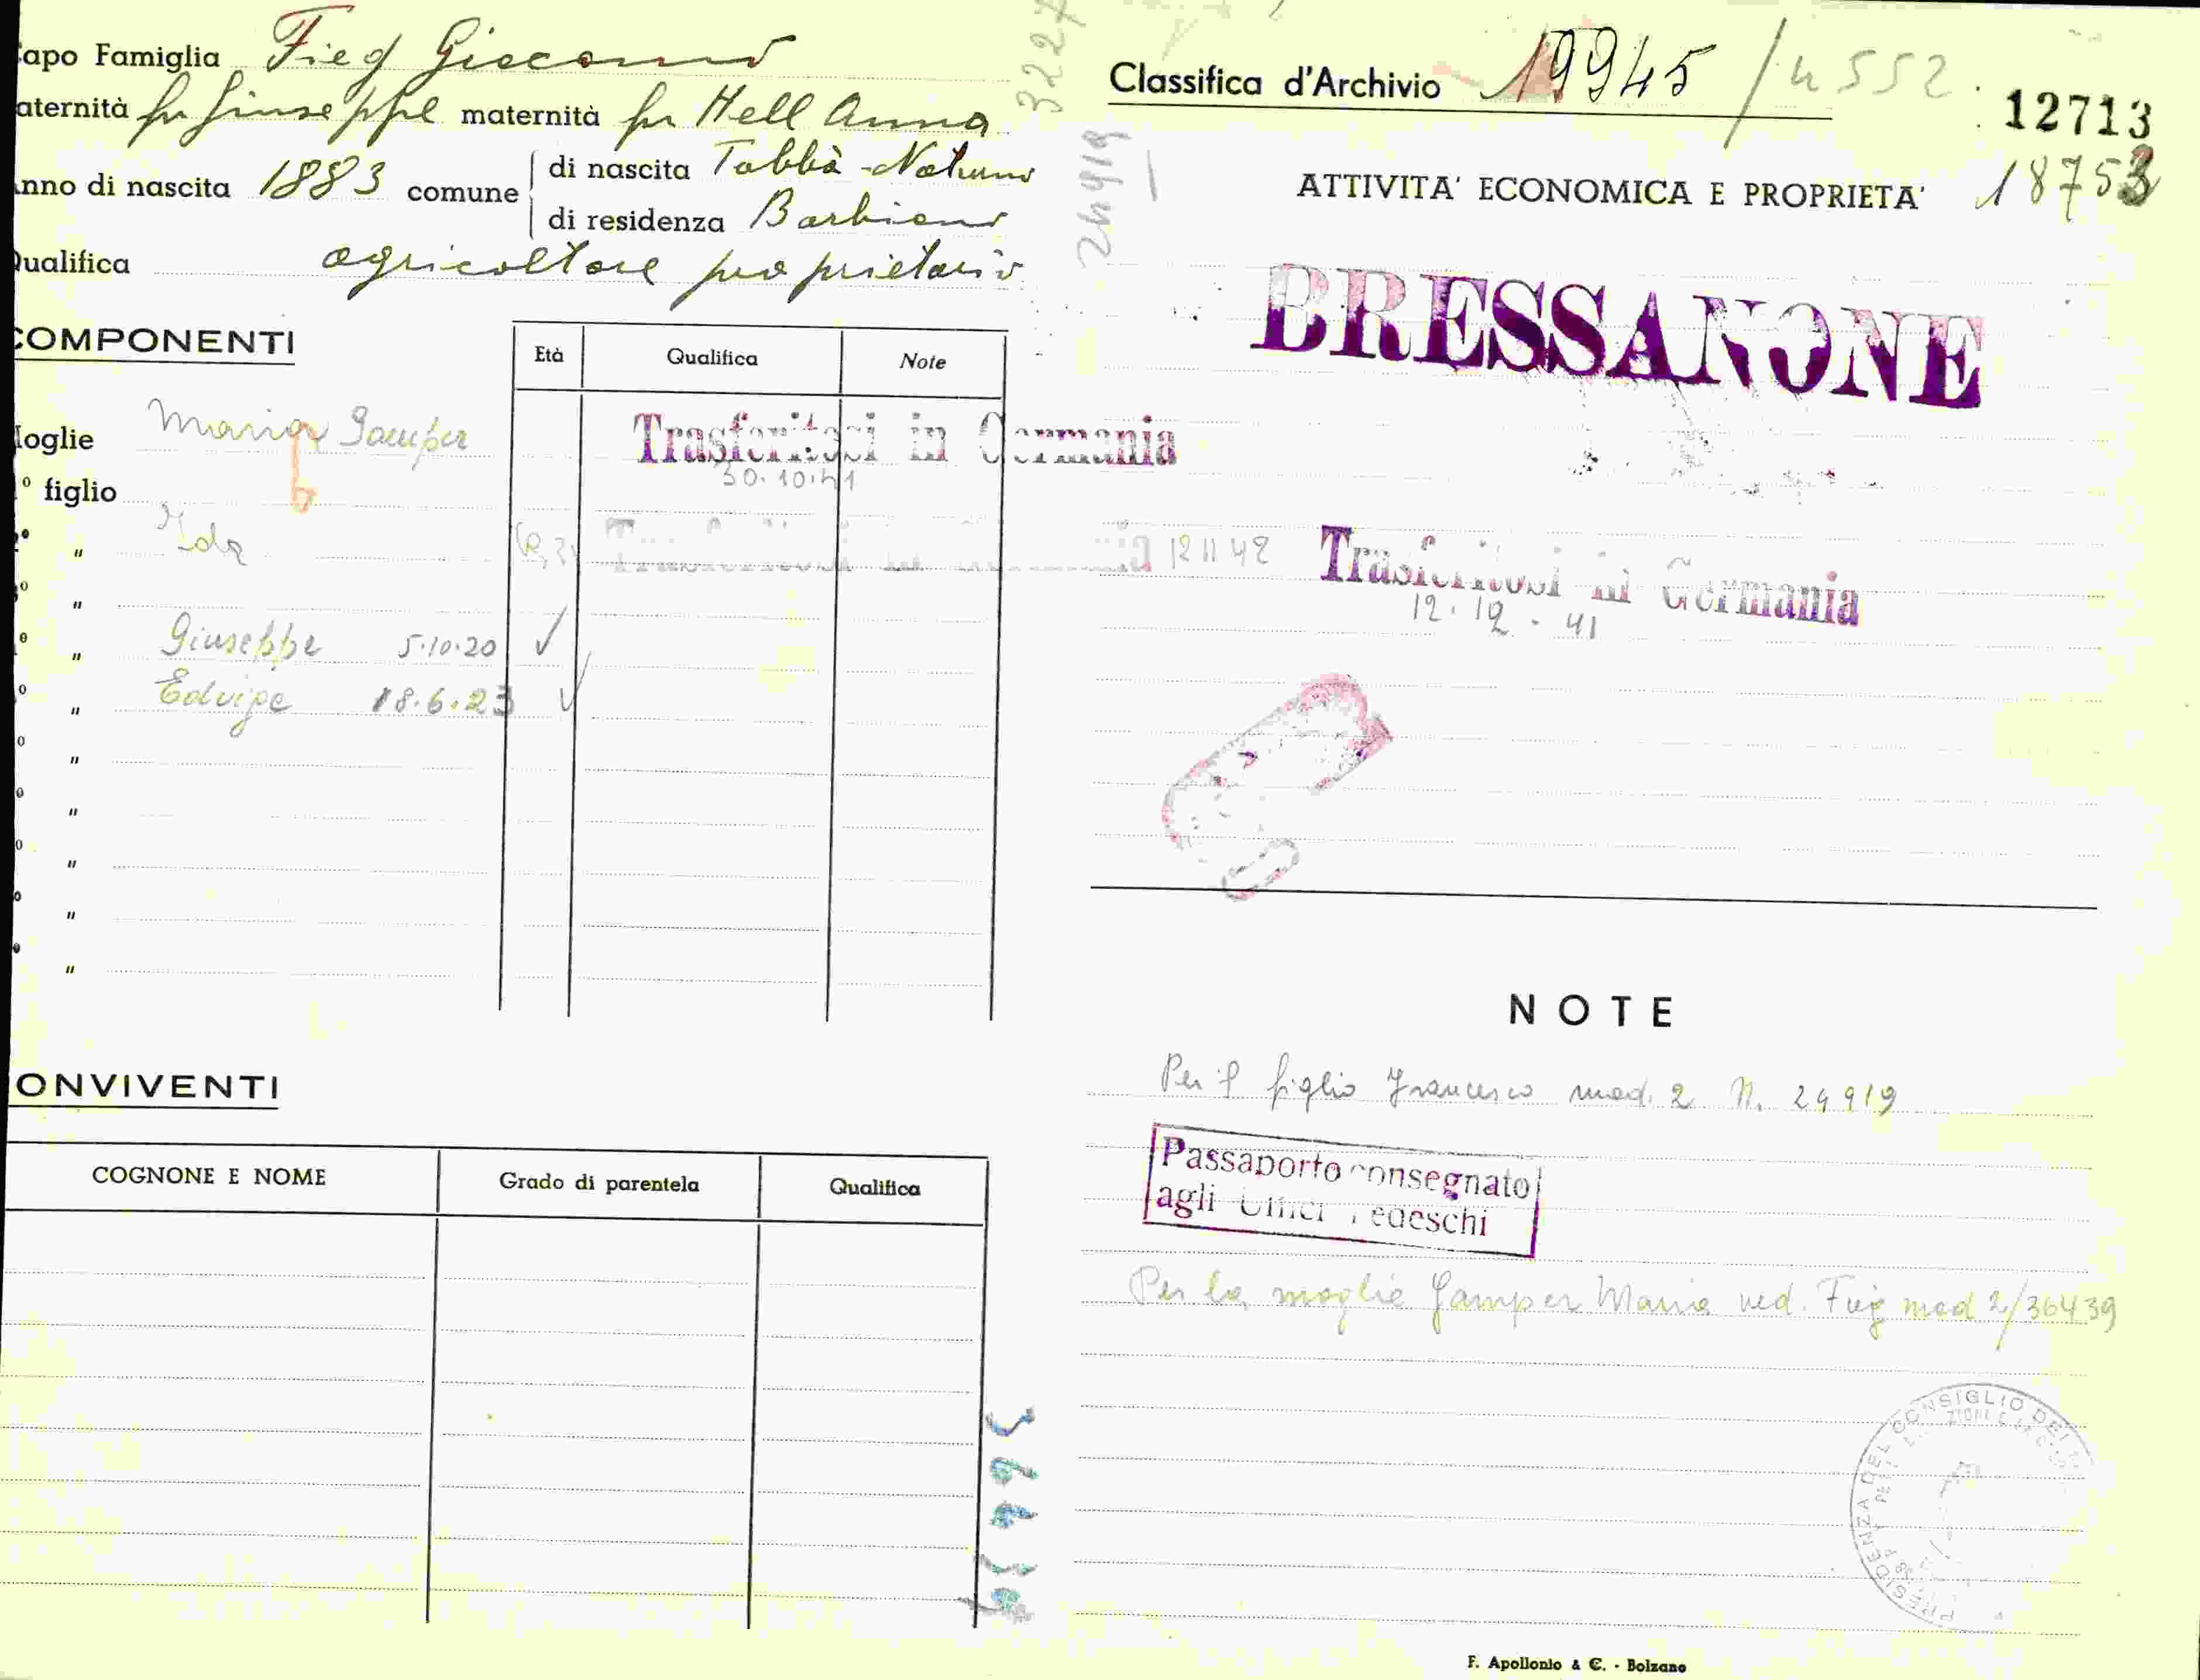 apo Famiglia Fieg Giacomo
aternità fu Giuseppe maternità fu Hell Anna
nno di nascita 1883 comune
di nascita Tablà - Naturno
di residenza Barbiano
ualifica agricoltore proprietario
OMPONENTI
Età Qualifica Note
oglie Maria Gamper
Trasferitosi in Germania
30.10.41
° figlio
° " Ida
Trasferitosi in Germania 12 11 42
° "
° " Giuseppe 5.10.20 ✓
° " Edvige 18.6.23 ✓
° "
° "
° "
° "
° "
ONVIVENTI
COGNONE E NOME Grado di parentela Qualifica
3227
24919
Classifica d'Archivio 19945 / 4552
12713
18753
ATTIVITA' ECONOMICA E PROPRIETA'
BRESSANONE
Trasferitosi in Germania
12.12.41
NOTE
Per il figlio Francesco mod. 2 N. 24919
Passaporto consegnato
agli Uffici Tedeschi
Per la moglie Gamper Maria ved. Fieg mod 2/36439
PRESIDENZA DEL CONSIGLIO DEI
F. Apollonio & C. - Bolzano